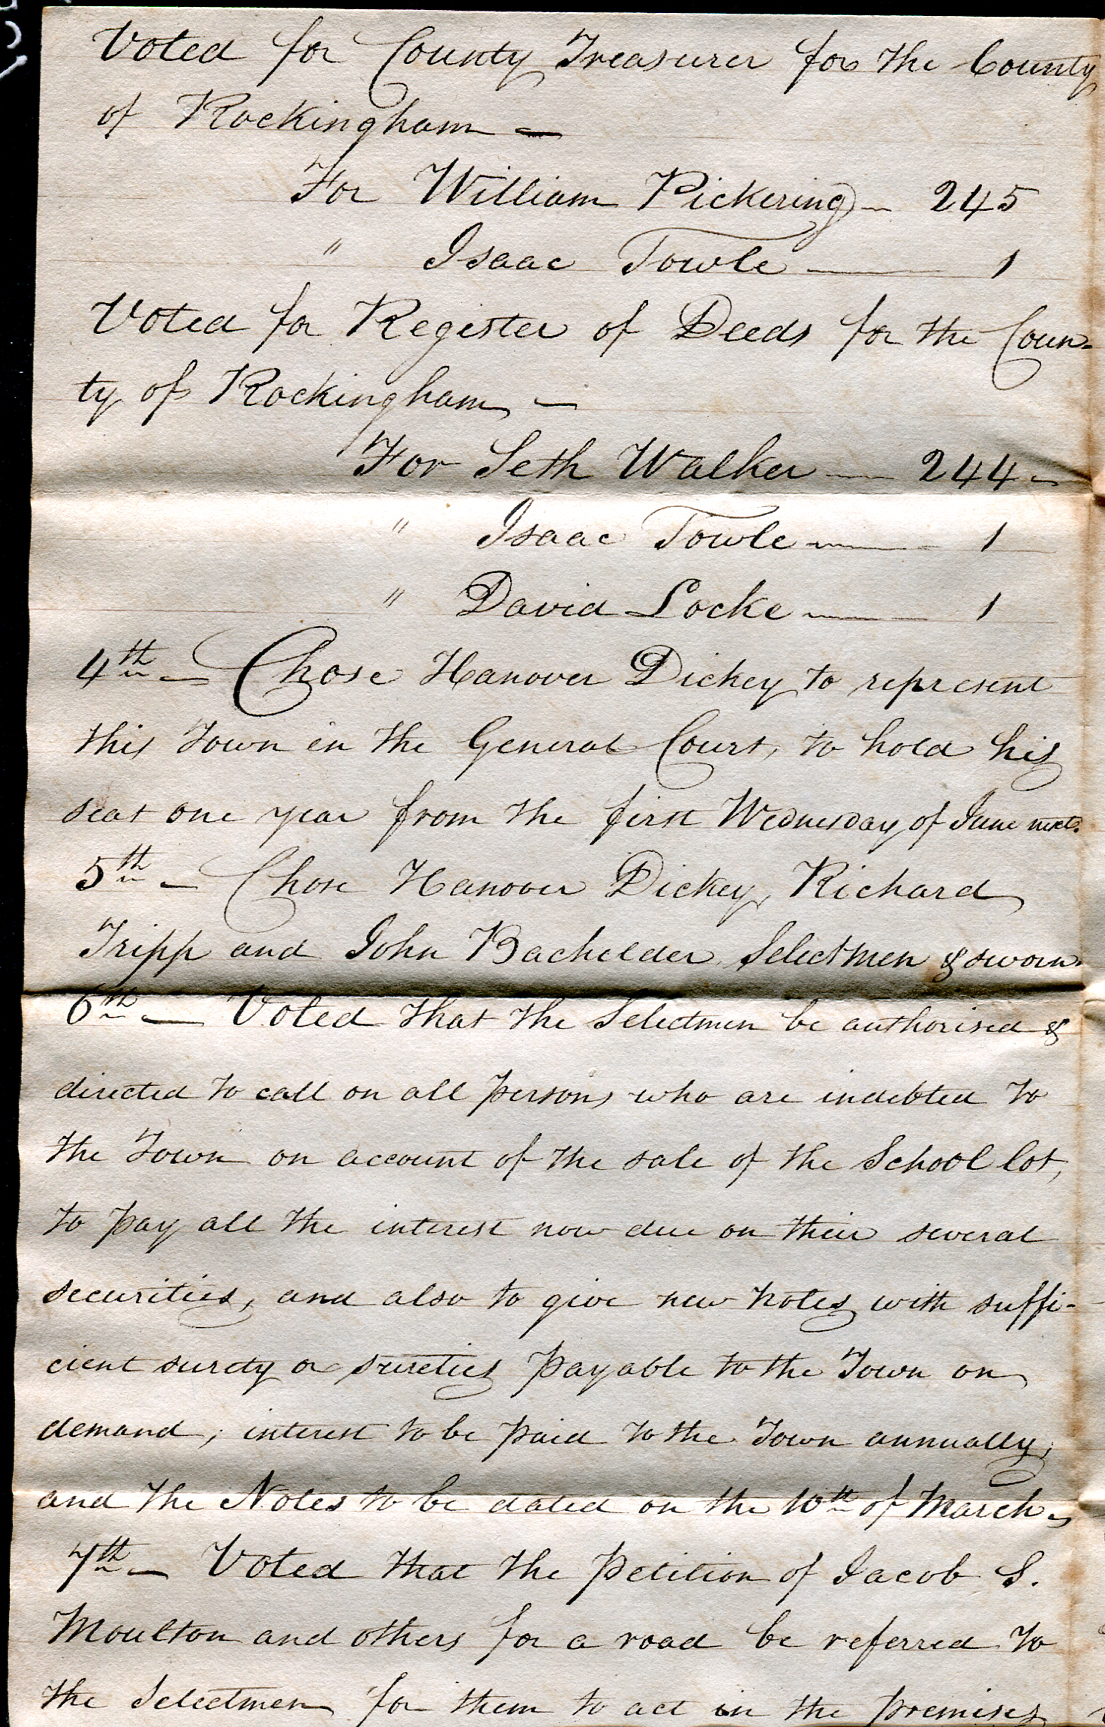 Voted for County Treasurer for the County
of Rockingham —
For William Pickering — 245
" Isaac Towle — 1
Voted for Register of Deeds for the Coun-
ty of Rockingham —
For Seth Walker — 244 —
" Isaac Towle — 1
" David Locke — 1
4th — Chose Hanover Dickey to represent
this Town in the General Court, to hold his
seat one year from the first Wednesday of June next.
5th — Chose Hanover Dickey, Richard
Tripp and John Bachelder Selectmen & sworn.
6th — Voted that the Selectmen be authorised &
directed to call on all persons who are indebted to
the Town on account of the sale of the School lot,
to pay all the interest now due on their several
securities, and also to give new notes with suffi-
cient surety or sureties payable to the Town on
demand; interest to be paid to the Town annually;
and the Notes to be dated on the 10th of March.
7th — Voted that the Petition of Jacob S.
Moulton and others for a road be referred to
the Selectmen for them to act in the premises